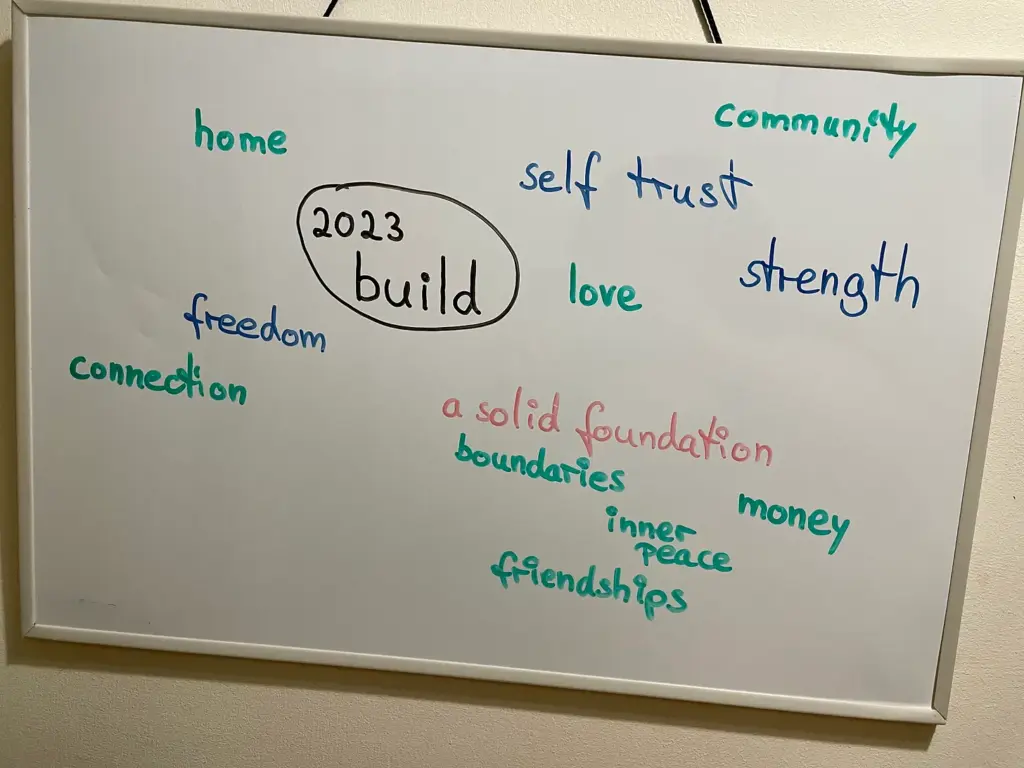 home
community
self trust
2023
build
love
strength
freedom
connection
a solid foundation
boundaries
money
inner
peace
friendships